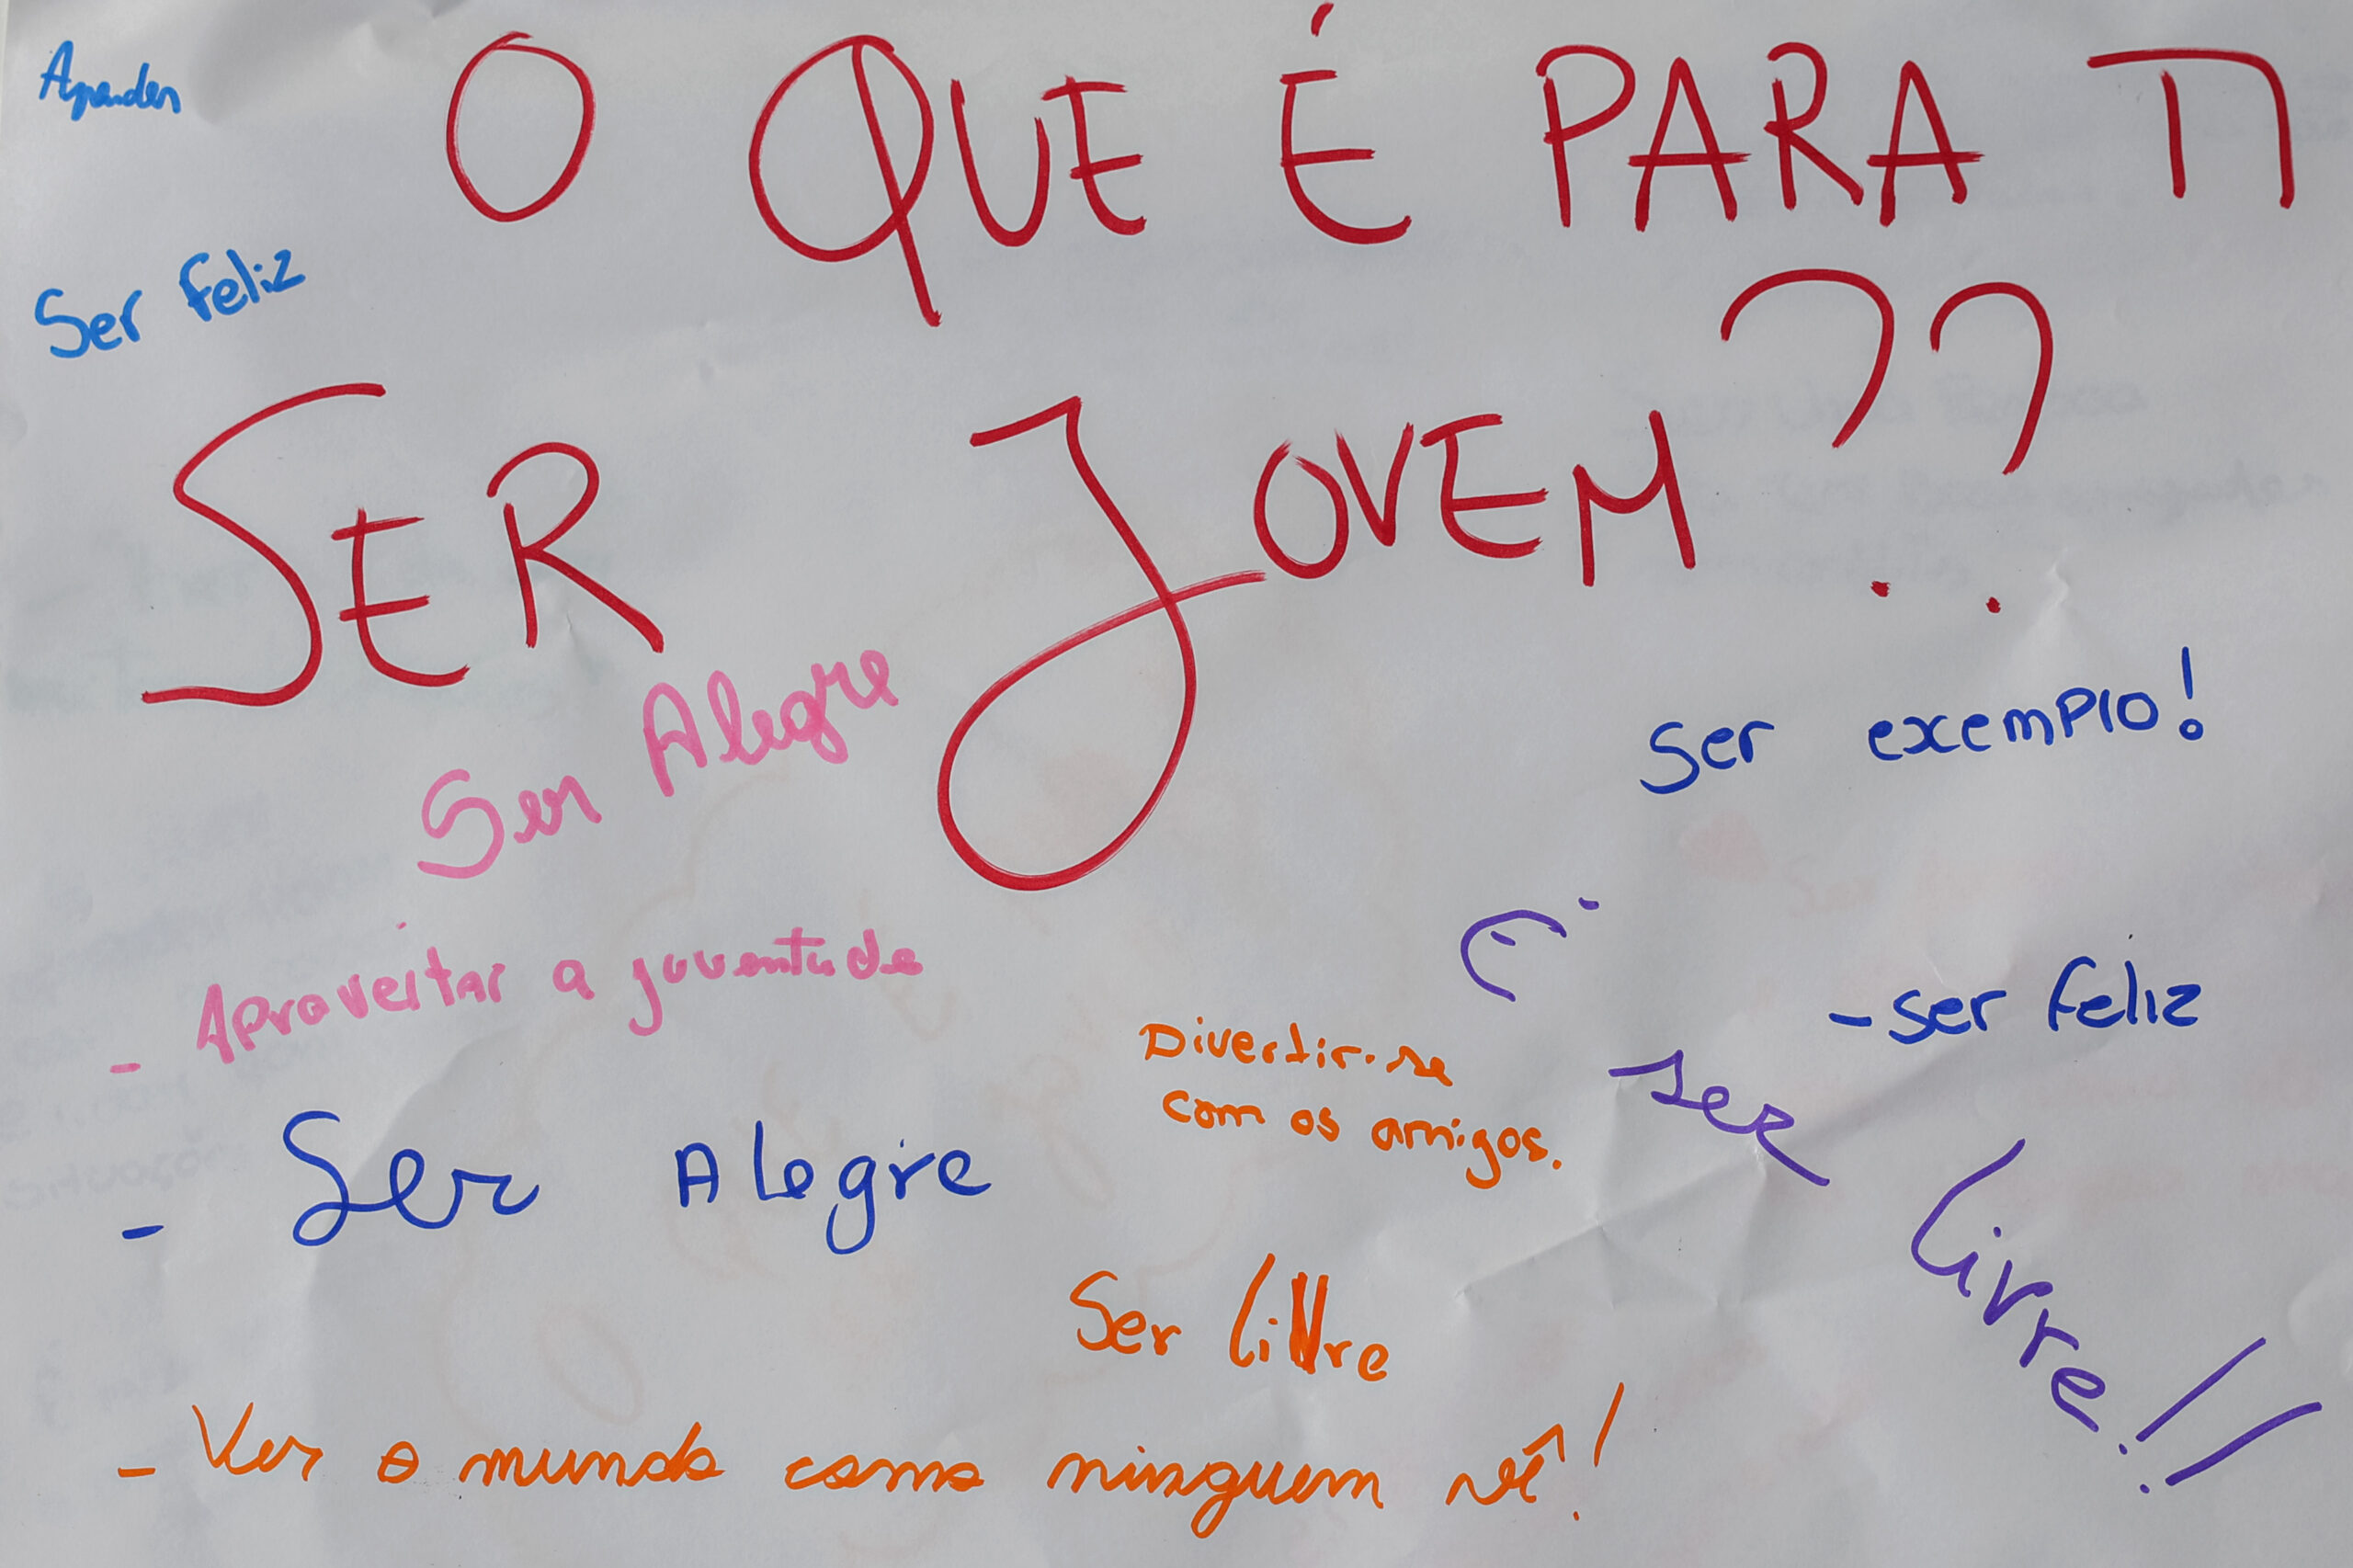 Aprender
O QUE É PARA TI
Ser feliz
SER JOVEM??
Ser Alegre
Ser exemplo!
- Aproveitar a juventude
É
- ser feliz
Divertir-se
com os amigos.
ser
- Ser Alegre
livre!!
Ser livre
- Ver o mundo como ninguem vê!